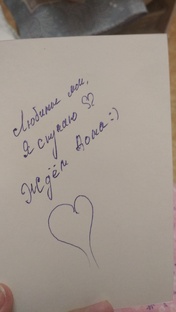 Любимые мои,
Я скучаю ♡
Ждём дома:)